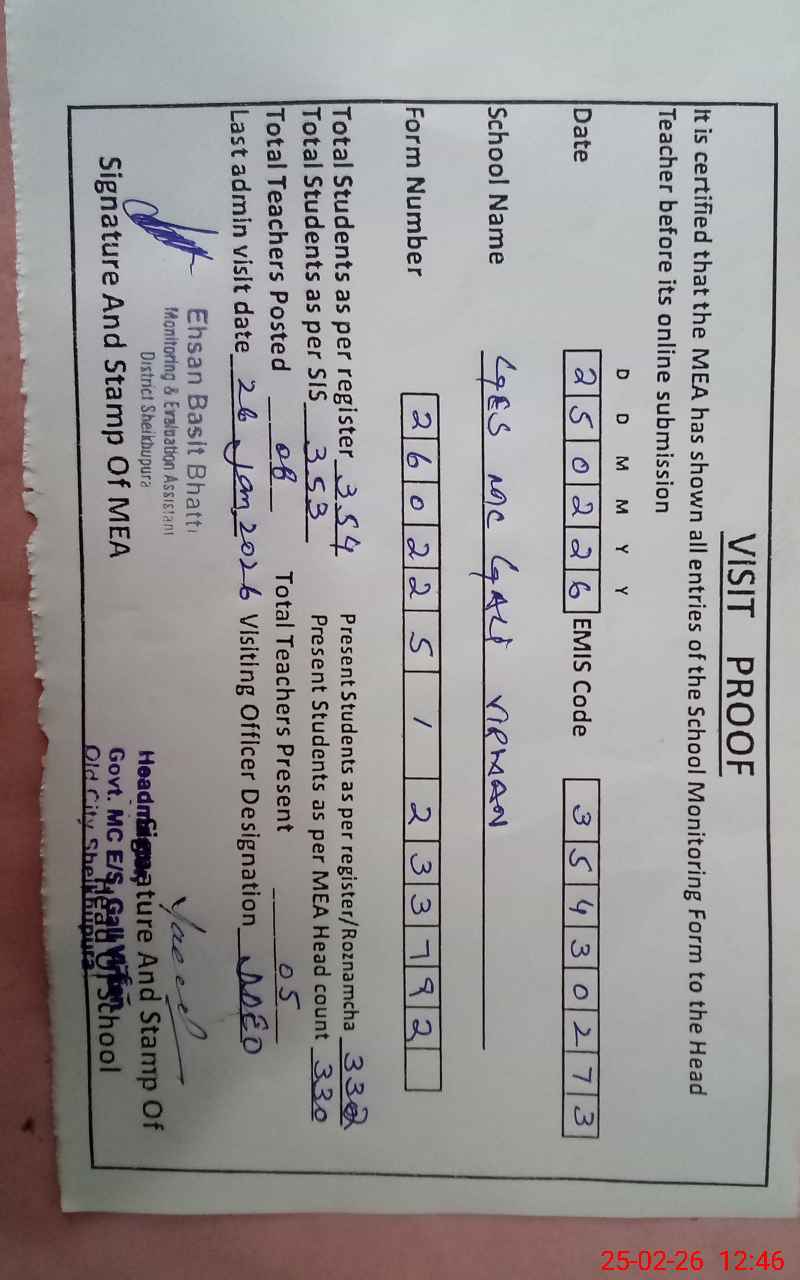 VISIT PROOF
It is certified that the MEA has shown all entries of the School Monitoring Form to the Head
Teacher before its online submission
D D M M Y Y
Date 250226 EMIS Code 35430273
School Name GES MC GALI VIRMAN
Form Number 2602251233792
Total Students as per register 354 Present Students as per register/Roznamcha 332
Total Students as per SIS 353 Present Students as per MEA Head count 330
Total Teachers Posted 08 Total Teachers Present 05
Last admin visit date 26 Jan, 2026 Visiting Officer Designation
Ehsan Basit Bhatti
Monitoring & Evaluation Assistant
District Sheikhupura
Signature And Stamp Of MEA
Signature And Stamp Of
Head Of School
Govt. MC E/S, Gali
Old City Sheikhupura
25-02-26 12:46